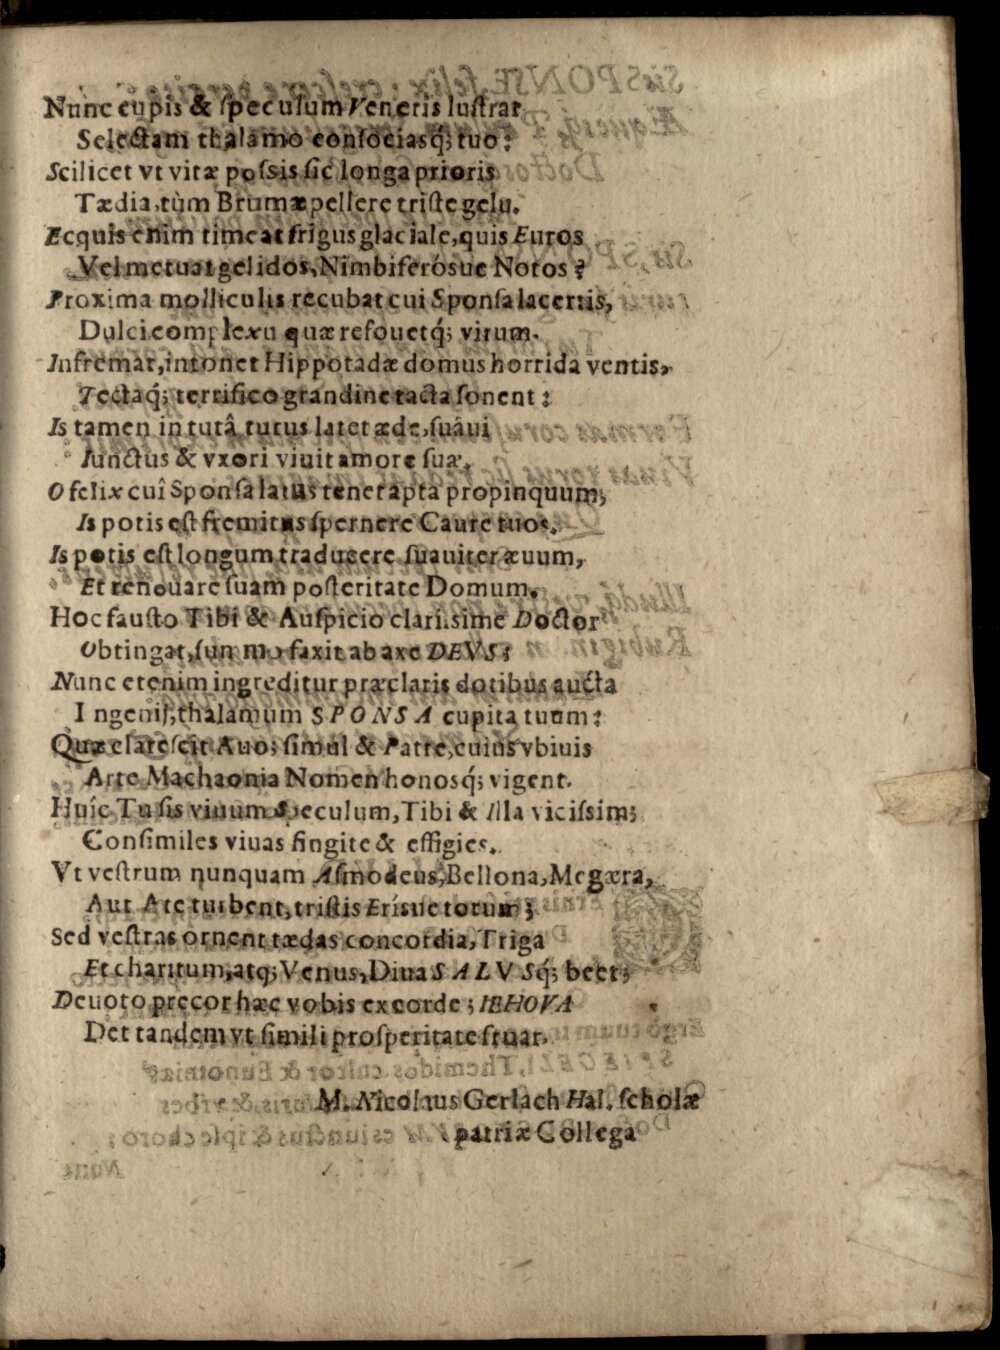 Nunc cupis & speculum Veneris lustrar
Selectam thalamo consociasq́; tuo?
Scilicet vt vitæ possis sic longa prioris
Tædia, tùm Brumæ pellere triste gelu.
Ecquis enim timeat frigus glaciale, quis Euros
Vel metuat gelidos, Nimbiferósue Notos?
Proxima molliculis recubat cui Sponsa lacertis,
Dulci complexu quæ refouetq́; virum.
Infremat, intonet Hippotadæ domus horrida ventis,
Tectaq́; terrifico grandine tacta sonent:
Is tamen in tutâ tutus latet æde, suâui
Iunctus & vxori viuit amore suæ.
O felix cuî Sponsa latus tenet apta propinquum;
Is potis est fremitus spernere Caure tuos.
Is potis est longum traducere suauiter æuum,
Et renouare suam posteritate Domum.
Hoc fausto Tibi & Auspicio clarissime Doctor
Obtingat, summo faxit ab axe DEVS:
Nunc etenim ingreditur præclaris dotibus aucta
Ingenij, thalamum SPONSA cupita tuum:
Quæ clarescit Auo; simul & Patre, cuius vbiuis
Arte Machaonia Nomen honosq́; vigent.
Huîc Tu sis viuum Speculum, Tibi & Illa vicissim;
Consimiles viuas fingite & effigies.
Vt vestrum nunquam Asmodeus, Bellona, Megæra,
Aut Ate turbent, tristis Erísue torum;
Sed vestras ornent tædas concordia, Triga
Et charitum, atq; Venus, Diua SALVSq́; beet;
Deuoto precor hæc vobis ex corde; IEHOVA
Det tandem vt simili prosperitate fruar.
M. Nicolaus Gerlach Hal. scholæ
patriæ Collega